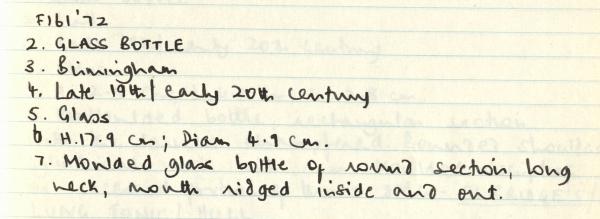 F161'72
2. GLASS BOTTLE
3. Birmingham
4. Late 19th/early 20th century
5. Glass
6. H.17.9 cm; Diam 4.9 cm.
7. Moulded glass bottle of round section, long
neck, mouth ridged inside and out.